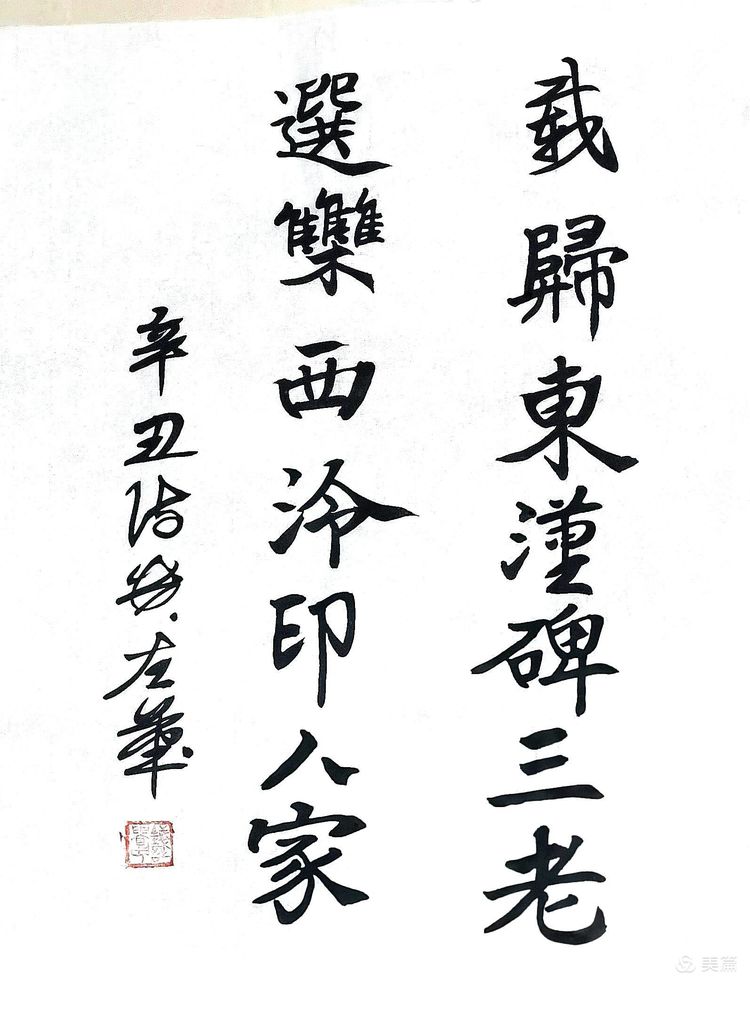 載歸東漢碑三老
選雧西泠印人家
辛丑 左筆
美篇